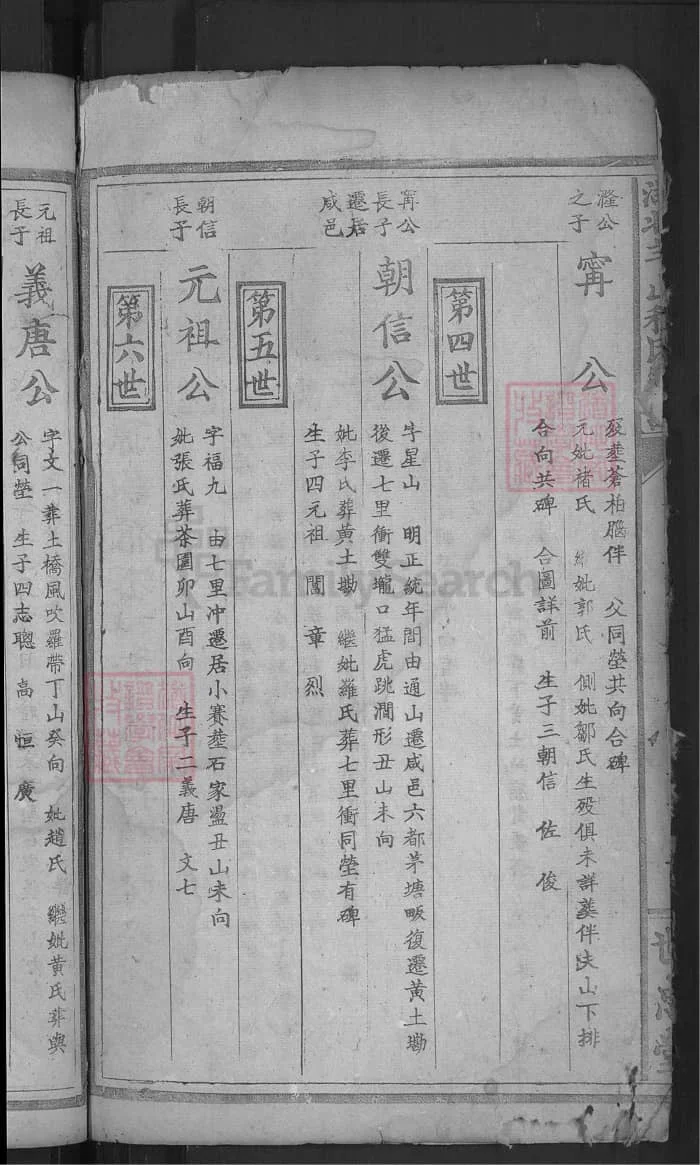 瀅公
之子
甯公
歿塟蒼柏腦伴 父同塋共向合碑
元妣褚氏 繼妣郭氏 側妣鄒氏生殁俱未詳葬伴夫山下排
合向共碑 合圖詳前 生子三朝信 佐 俊
第四世
甯公
長子
遷居
咸邑
朝信公
牛星山 明正統年間由通山遷咸邑六都茅塘畈復遷黃土墈
後遷七里衝雙壠口猛虎跳澗形丑山未向
妣李氏葬黃土墈 繼妣羅氏葬七里衝同塋有碑
生子四元祖 閏 章 烈
第五世
朝信
長子
元祖公
字福九 由七里冲遷居小賽塟石家盪丑山未向
妣張氏葬茶園卯山酉向 生子二義唐 文七
第六世
元祖
長子
義唐公
字文一葬土橋風吹羅帶丁山癸向 妣趙氏 繼妣黃氏葬與
公同塋 生子四志聰 高 恒 廣
FamilySearch